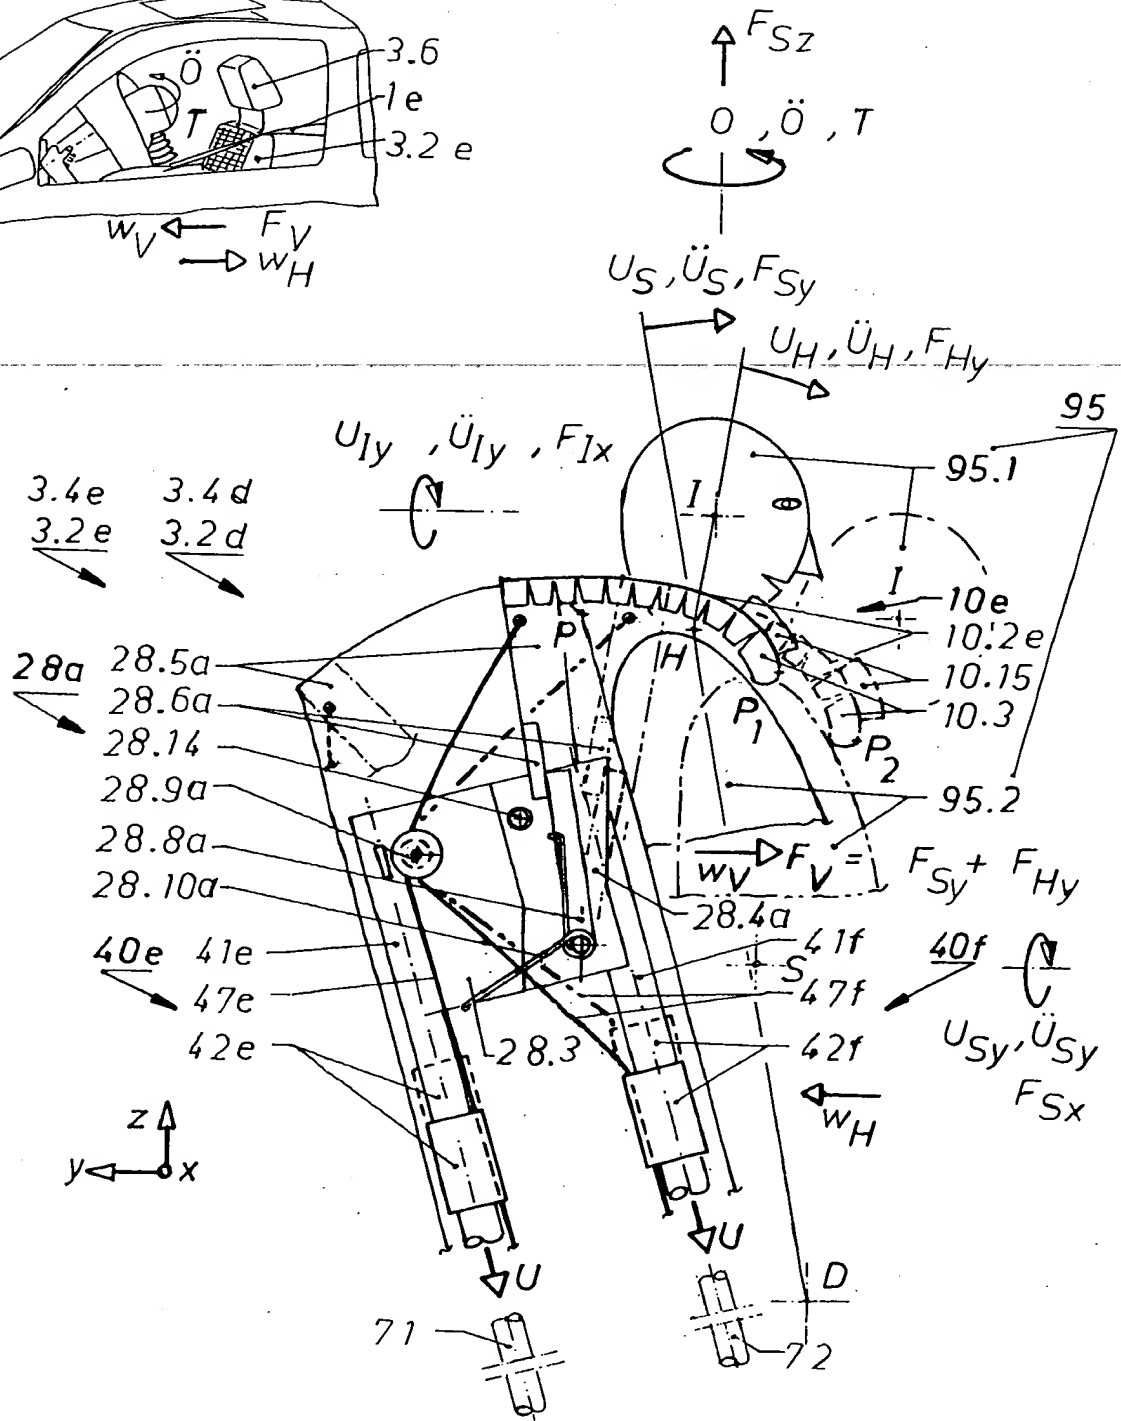 Ö
T
3.6
1e
3.2 e
w_V
F_V
w_H
F_Sz
O , Ö , T
U_S , Ü_S , F_Sy
U_H , Ü_H , F_Hy
U_Iy , Ü_Iy , F_Ix
95
95.1
I
I
3.4e 3.4d
3.2e 3.2d
10e
10.2e
10.15
10.3
P
H
P_1
P_2
28a
28.5a
28.6a
28.14
28.9a
28.8a
28.10a
95.2
w_V F_V = F_Sy + F_Hy
28.4a
40e
41e
47e
42e
28.3
41f
40f
S
47f
42f
U_Sy , Ü_Sy
F_Sx
w_H
z
y
x
U
U
D
71
72